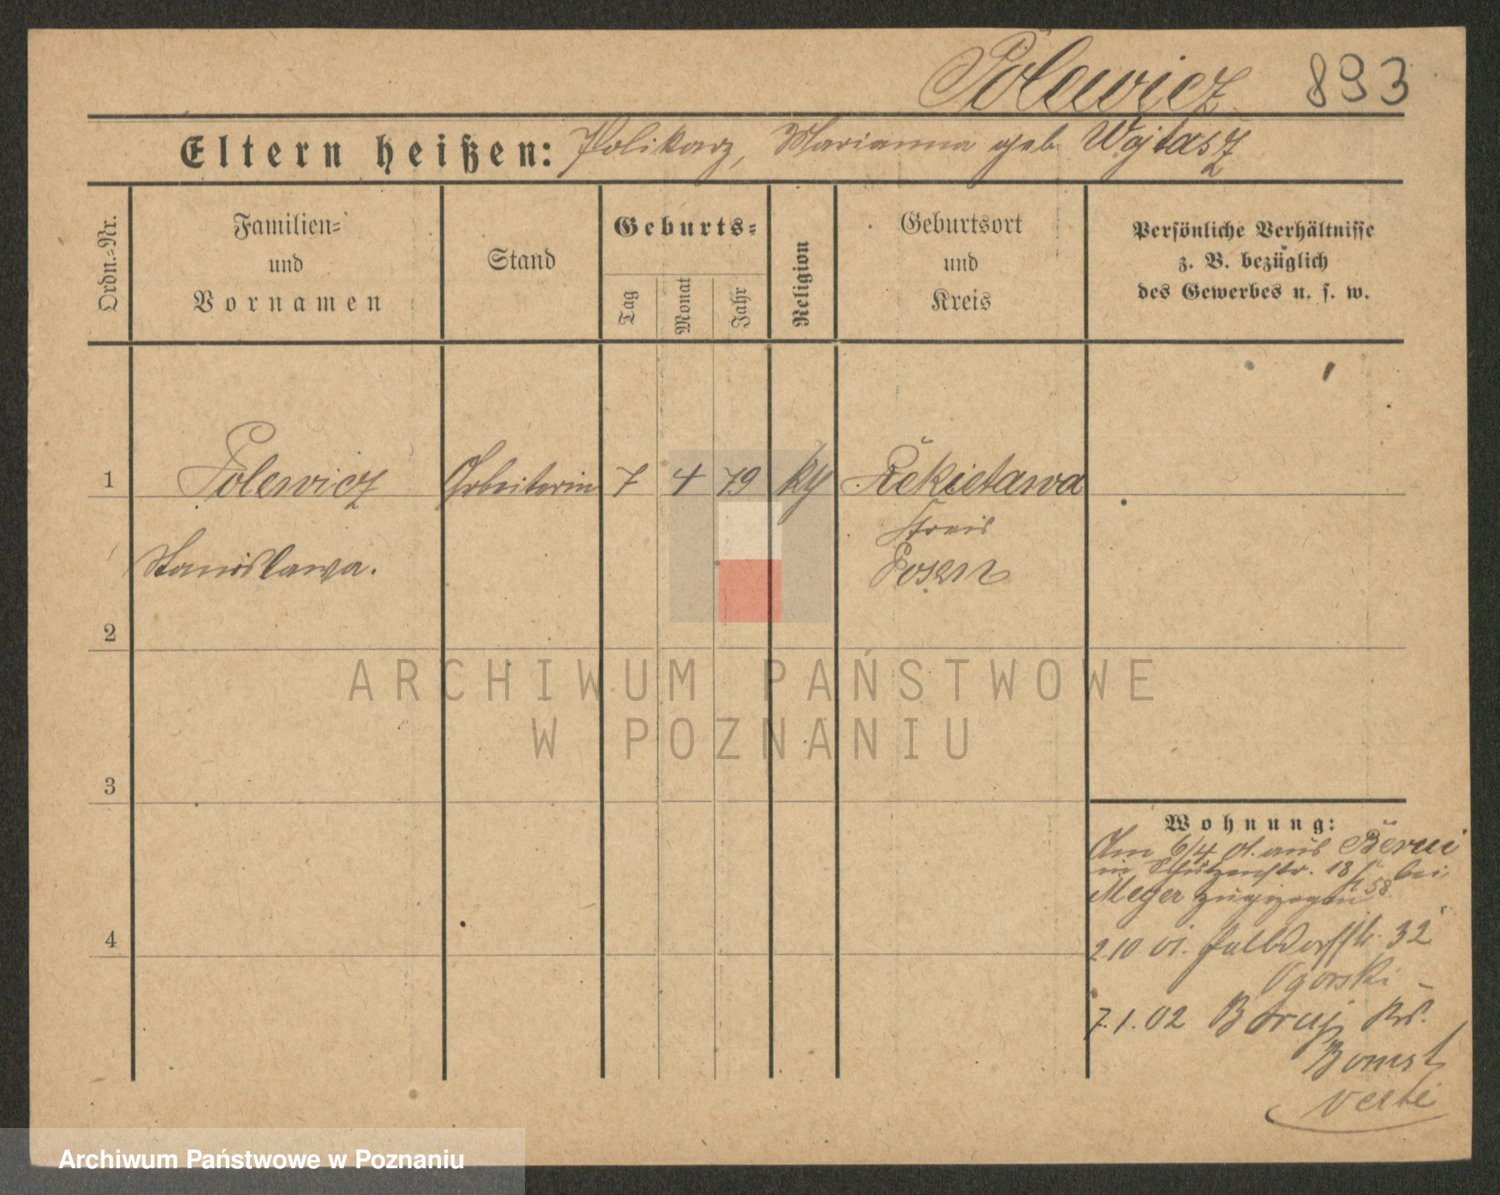 Polewicz 893
Eltern heißen: Polikarz, Marianna geb. Wojtasz
Ordn.-Nr.
Familien-
und
Vornamen
Stand
Geburts-
Tag
Monat
Jahr
Religion
Geburtsort
und
Kreis
Persönliche Verhältnisse
z. B. bezüglich
des Gewerbes u. s. w.
1 Polewicz Arbeiterin 7 4 79 kth
Kreis
Stanislawa. Posen
2
3
4
Wohnung:
Am 6/4 01 aus Borui
in Schützenstr. 18 bei
Meyer zugezogen 58
2.10.01. Halbdorfstr. 32
Ogorski
7.1.02 Boruj Krs.
Bomst
verte
ARCHIWUM PAŃSTWOWE
W POZNANIU
Archiwum Państwowe w Poznaniu